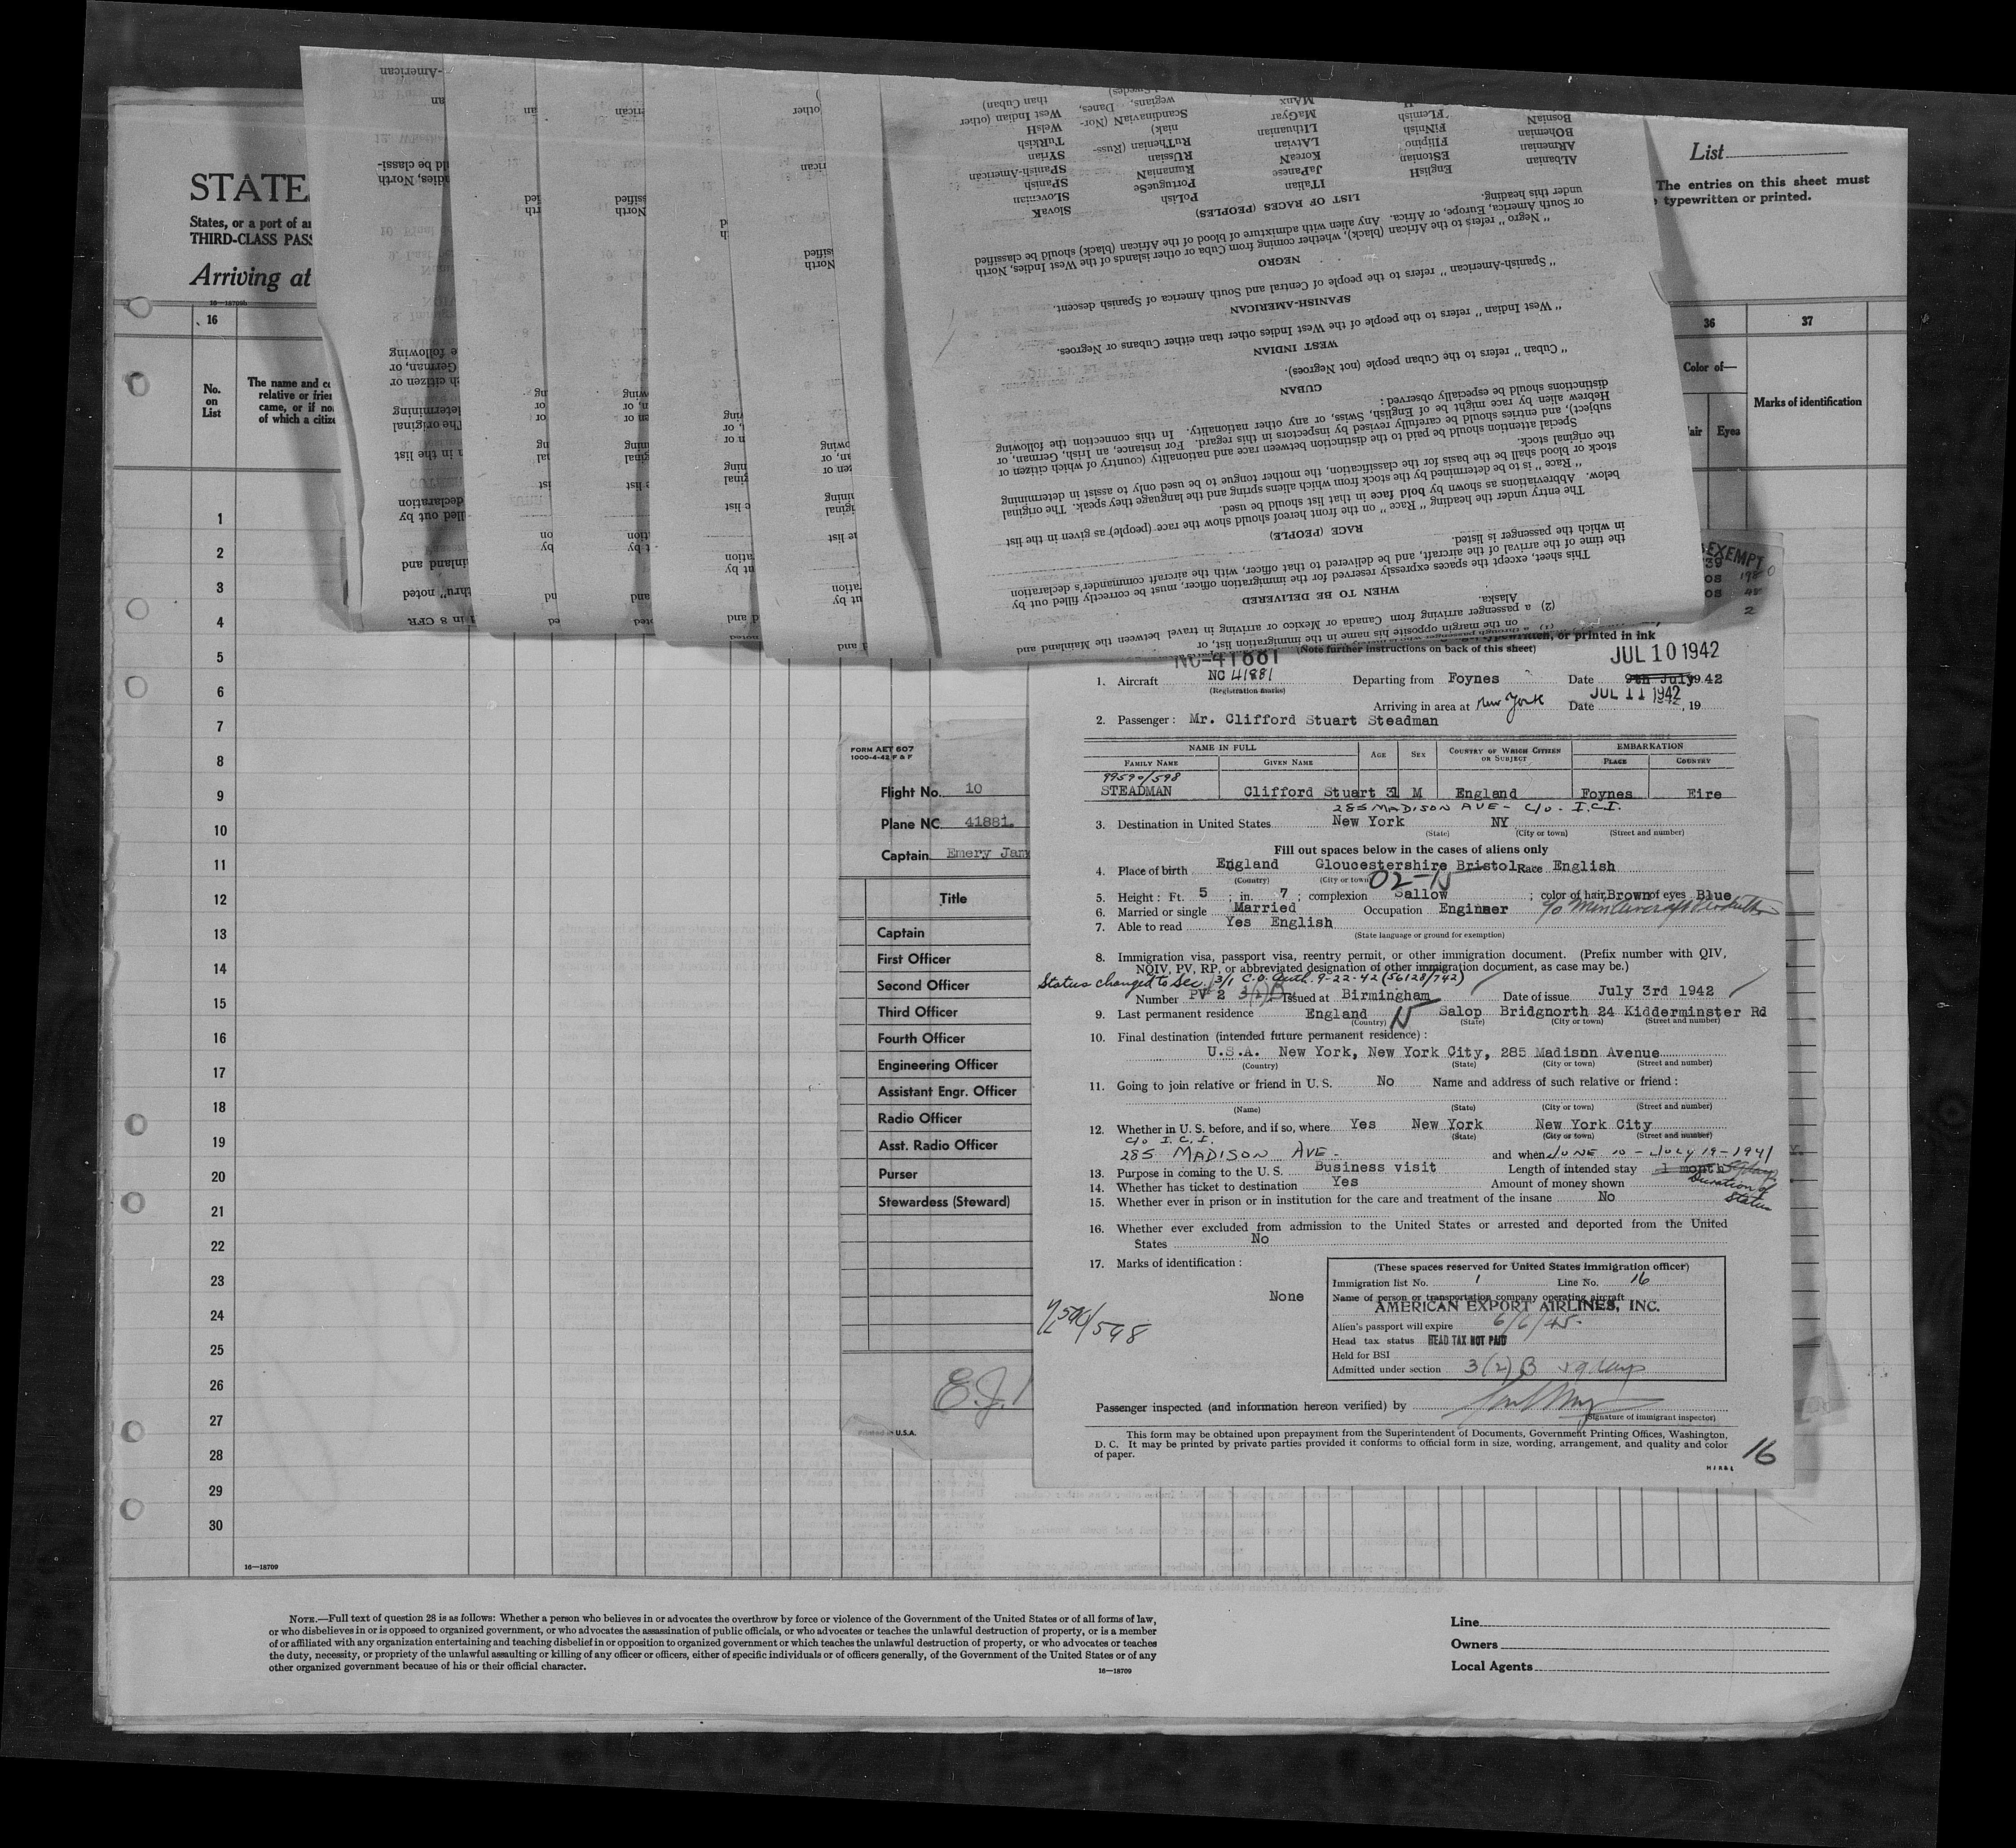 STATE
States, or a port of
THIRD-CLASS
Arriving at
16—18709b
List
The entries on this sheet must
typewritten or printed.
16
36
37
No.
on
List
The name and
relative or
came, or if
of which a
Color of—
Eyes
Marks of identification
1
2
3
4
5
6
7
8
9
10
11
12
13
14
15
16
17
18
19
20
21
22
23
24
25
26
27
28
29
30
16—18709
on the margin opposite his name in the immigration list, or
(2) a passenger arriving from Canada or Mexico or arriving in travel between the Mainland and
Alaska.
WHEN TO BE DELIVERED
This sheet, except the spaces expressly reserved for the immigration officer, must be correctly filled out by
the time of the arrival of the aircraft, and be delivered to that officer, with the aircraft commander's declaration
in which the passenger is listed.
RACE (PEOPLE)
The entry under the heading "Race" on the front hereof should show the race (people) as given in the list
below. Abbreviations as shown by bold face in that list should be used.
"Race" is to be determined by the stock from which aliens spring and the language they speak. The original
stock or blood shall be the basis for the classification, the mother tongue to be used only to assist in determining
the original stock.
Special attention should be paid to the distinction between race and nationality (country of which citizen or
subject), and entries should be carefully revised by inspectors in this regard. For instance, an Irish, German, or
Hebrew alien by race might be of English, Swiss, or any other nationality. In this connection the following
distinctions should be especially observed:
CUBAN
"Cuban" refers to the Cuban people (not Negroes).
WEST INDIAN
"West Indian" refers to the people of the West Indies other than either Cubans or Negroes.
SPANISH-AMERICAN
"Spanish-American" refers to the people of Central and South America of Spanish descent.
NEGRO
"Negro" refers to the African (black), whether coming from Cuba or other islands of the West Indies, North
or South America, Europe, or Africa. Any alien with admixture of blood of the African (black) should be classified
under this heading.
LIST OF RACES (PEOPLES)
AlBanian EnglisH ITalian PolIsh SlovaK
ARmenian EStonian JaPanese PortugueSe SLovenian
BOhemian FIlipino KoreaN RumaniaN SPanish
BosniaN FiNnish LAtvian RUssian SPanish-American
FLemish LIthuanian RuThenian (Russniak) SYrian
MaGyar ScandinaviaN (Norwegians, Danes, Swedes) TuRkish
MAnx WelsH
West Indian (other than Cuban)
EXEMPT
FORM AET 607
1000-4-42 F & F
Flight No. 10
Plane NC 41881.
Captain Emery
Title
Captain
First Officer
Second Officer
Third Officer
Fourth Officer
Engineering Officer
Assistant Engr. Officer
Radio Officer
Asst. Radio Officer
Purser
Stewardess (Steward)
E.J.
Printed in U.S.A.
or printed in ink
NC-41881 (Note further instructions on back of this sheet) JUL 10 1942
1. Aircraft NC 41881 Departing from Foynes Date 9th July 1942
(Registration marks)
Arriving in area at New York Date JUL 11 1942, 19
2. Passenger: Mr. Clifford Stuart Steadman
NAME IN FULL AGE SEX COUNTRY OF WHICH CITIZEN OR SUBJECT EMBARKATION
FAMILY NAME GIVEN NAME PLACE COUNTRY
99590/598
STEADMAN Clifford Stuart 31 M England Foynes Eire
285 MADISON AVE - C/O. I.C.I.
3. Destination in United States New York NY
(State) (City or town) (Street and number)
Fill out spaces below in the cases of aliens only
4. Place of birth England Gloucestershire Bristol Race English
(Country) (City or town)
5. Height: Ft. 5; in. 7; complexion Sallow; color of hair Brown of eyes Blue
6. Married or single Married Occupation Enginaer c/o Min Aircraft Production
7. Able to read Yes English
(State language or ground for exemption)
8. Immigration visa, passport visa, reentry permit, or other immigration document. (Prefix number with QIV,
NQIV, PV, RP, or abbreviated designation of other immigration document, as case may be.)
Status changed to Sec. 3/1 C.O. Auth. 9-22-42 (56128/742)
Number PV 2 3(2)B Issued at Birmingham Date of issue July 3rd 1942
9. Last permanent residence England Salop Bridgnorth 24 Kidderminster Rd
(Country) (State) (City or town) (Street and number)
10. Final destination (intended future permanent residence):
U.S.A. New York, New York City, 285 Madison Avenue
(Country) (State) (City or town) (Street and number)
11. Going to join relative or friend in U. S. No Name and address of such relative or friend:
(Name) (State) (City or town) (Street and number)
12. Whether in U. S. before, and if so, where Yes New York New York City
(State) (City or town) (Street and number)
c/o I.C.I.
285 MADISON AVE - and when JUNE 10 - JULY 19 - 1941
13. Purpose in coming to the U. S. Business visit Length of intended stay 1 month 59 days
Duration of Status
14. Whether has ticket to destination Yes Amount of money shown
15. Whether ever in prison or in institution for the care and treatment of the insane No
16. Whether ever excluded from admission to the United States or arrested and deported from the United
States No
17. Marks of identification:
None
(These spaces reserved for United States immigration officer)
Immigration list No. 1 Line No. 16
Name of person or transportation company operating aircraft
AMERICAN EXPORT AIRLINES, INC.
Alien's passport will expire 6/6/45
Head tax status HEAD TAX NOT PAID
Held for BSI
Admitted under section 3(2)B 59 days
Passenger inspected (and information hereon verified) by
(Signature of immigrant inspector)
This form may be obtained upon prepayment from the Superintendent of Documents, Government Printing Offices, Washington,
D. C. It may be printed by private parties provided it conforms to official form in size, wording, arrangement, and quality and color
of paper.
16
NOTE.—Full text of question 28 is as follows: Whether a person who believes in or advocates the overthrow by force or violence of the Government of the United States or of all forms of law,
or who disbelieves in or is opposed to organized government, or who advocates the assassination of public officials, or who advocates or teaches the unlawful destruction of property, or is a member
of or affiliated with any organization entertaining and teaching disbelief in or opposition to organized government or which teaches the unlawful destruction of property, or who advocates or teaches
the duty, necessity, or propriety of the unlawful assaulting or killing of any officer or officers, either of specific individuals or of officers generally, of the Government of the United States or of any
other organized government because of his or their official character.
16—18709
Line
Owners
Local Agents